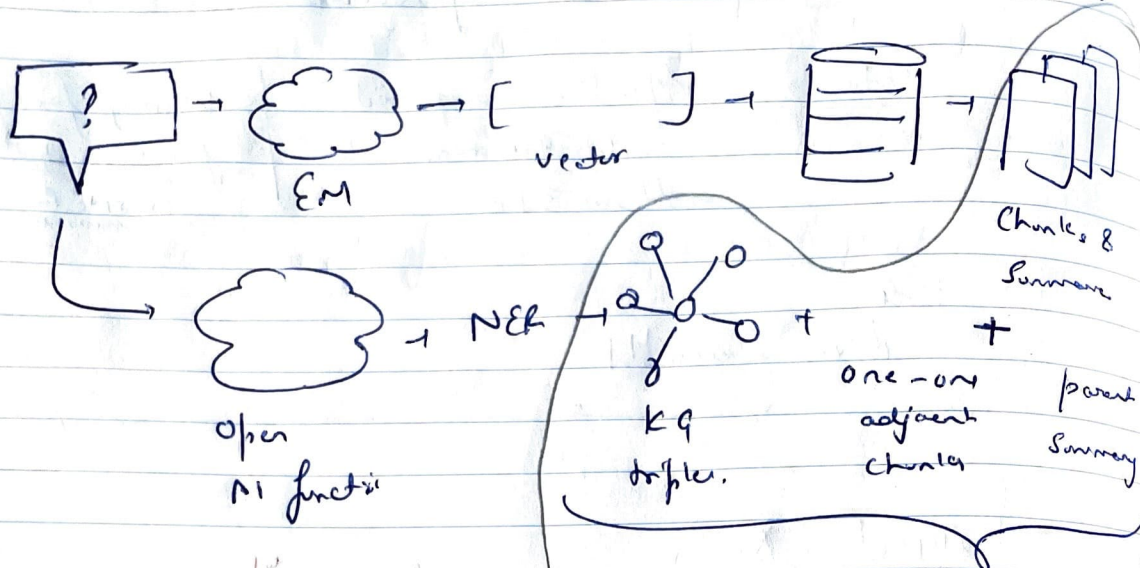 ?
EM
[ ]
vector
Chunks &
Summary
NER
+
+
Open
AI function
KG
triples.
one-one
adjacent
chunks
parent
Summary